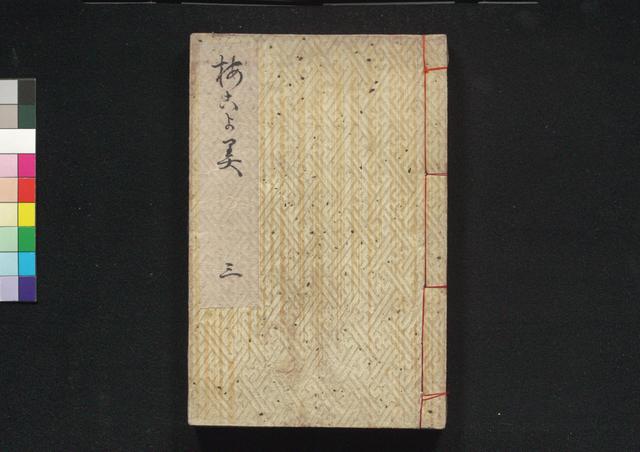 梅こよ美
三